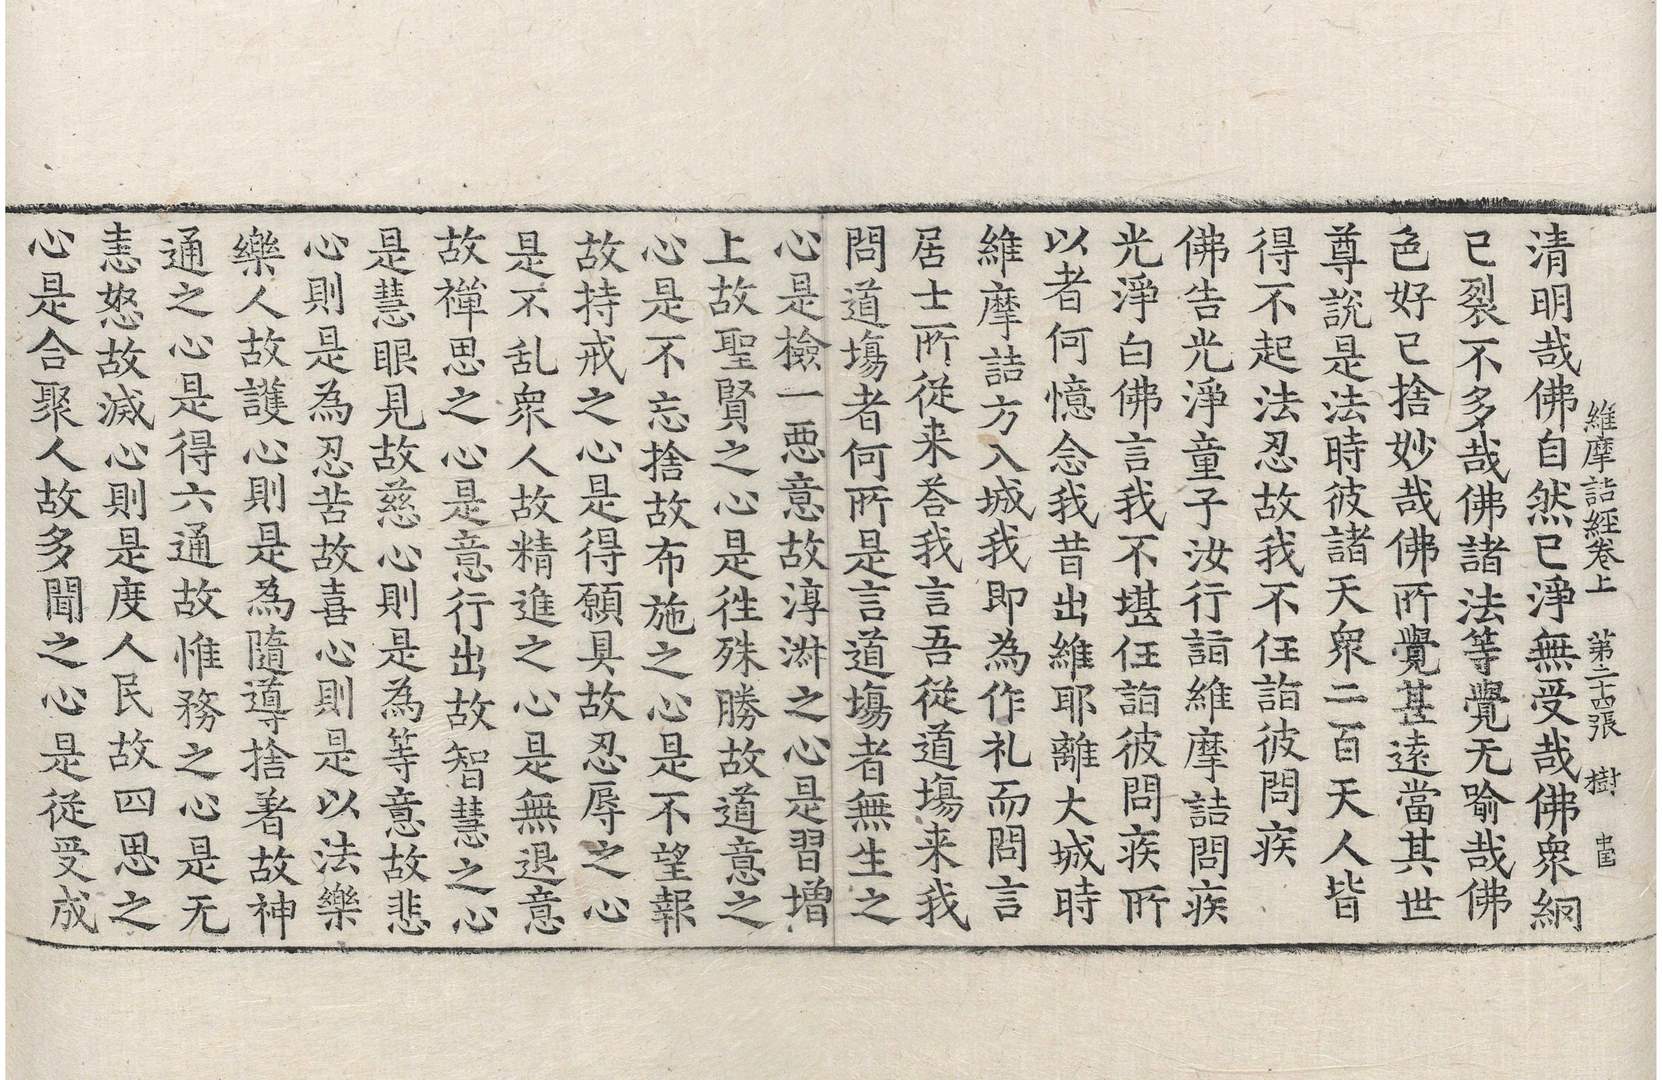 維摩詰經卷上　第二十四張　樹　中囯
清明哉佛自然已淨無受哉佛衆網
已裂不多哉佛諸法等覺无喻哉佛
色好已捨妙哉佛所覺甚遠當其世
尊說是法時彼諸天衆二百天人皆
得不起法忍故我不任詣彼問疾
佛告光淨童子汝行詣維摩詰問疾
光淨白佛言我不堪任詣彼問疾所
以者何憶念我昔出維耶離大城時
維摩詰方入城我即為作礼而問言
居士所從来荅我言吾從道塲来我
問道塲者何所是言道塲者無生之
心是檢一惡意故淳淑之心是習增
上故聖賢之心是往殊勝故道意之
心是不忘捨故布施之心是不望報
故持戒之心是得願具故忍辱之心
是不乱衆人故精進之心是無退意
故禪思之心是意行出故智慧之心
是慧眼見故慈心則是為等意故悲
心則是為忍苦故喜心則是以法樂
樂人故護心則是為隨導捨著故神
通之心是得六通故惟務之心是无
恚怒故滅心則是度人民故四恩之
心是合聚人故多聞之心是從受成